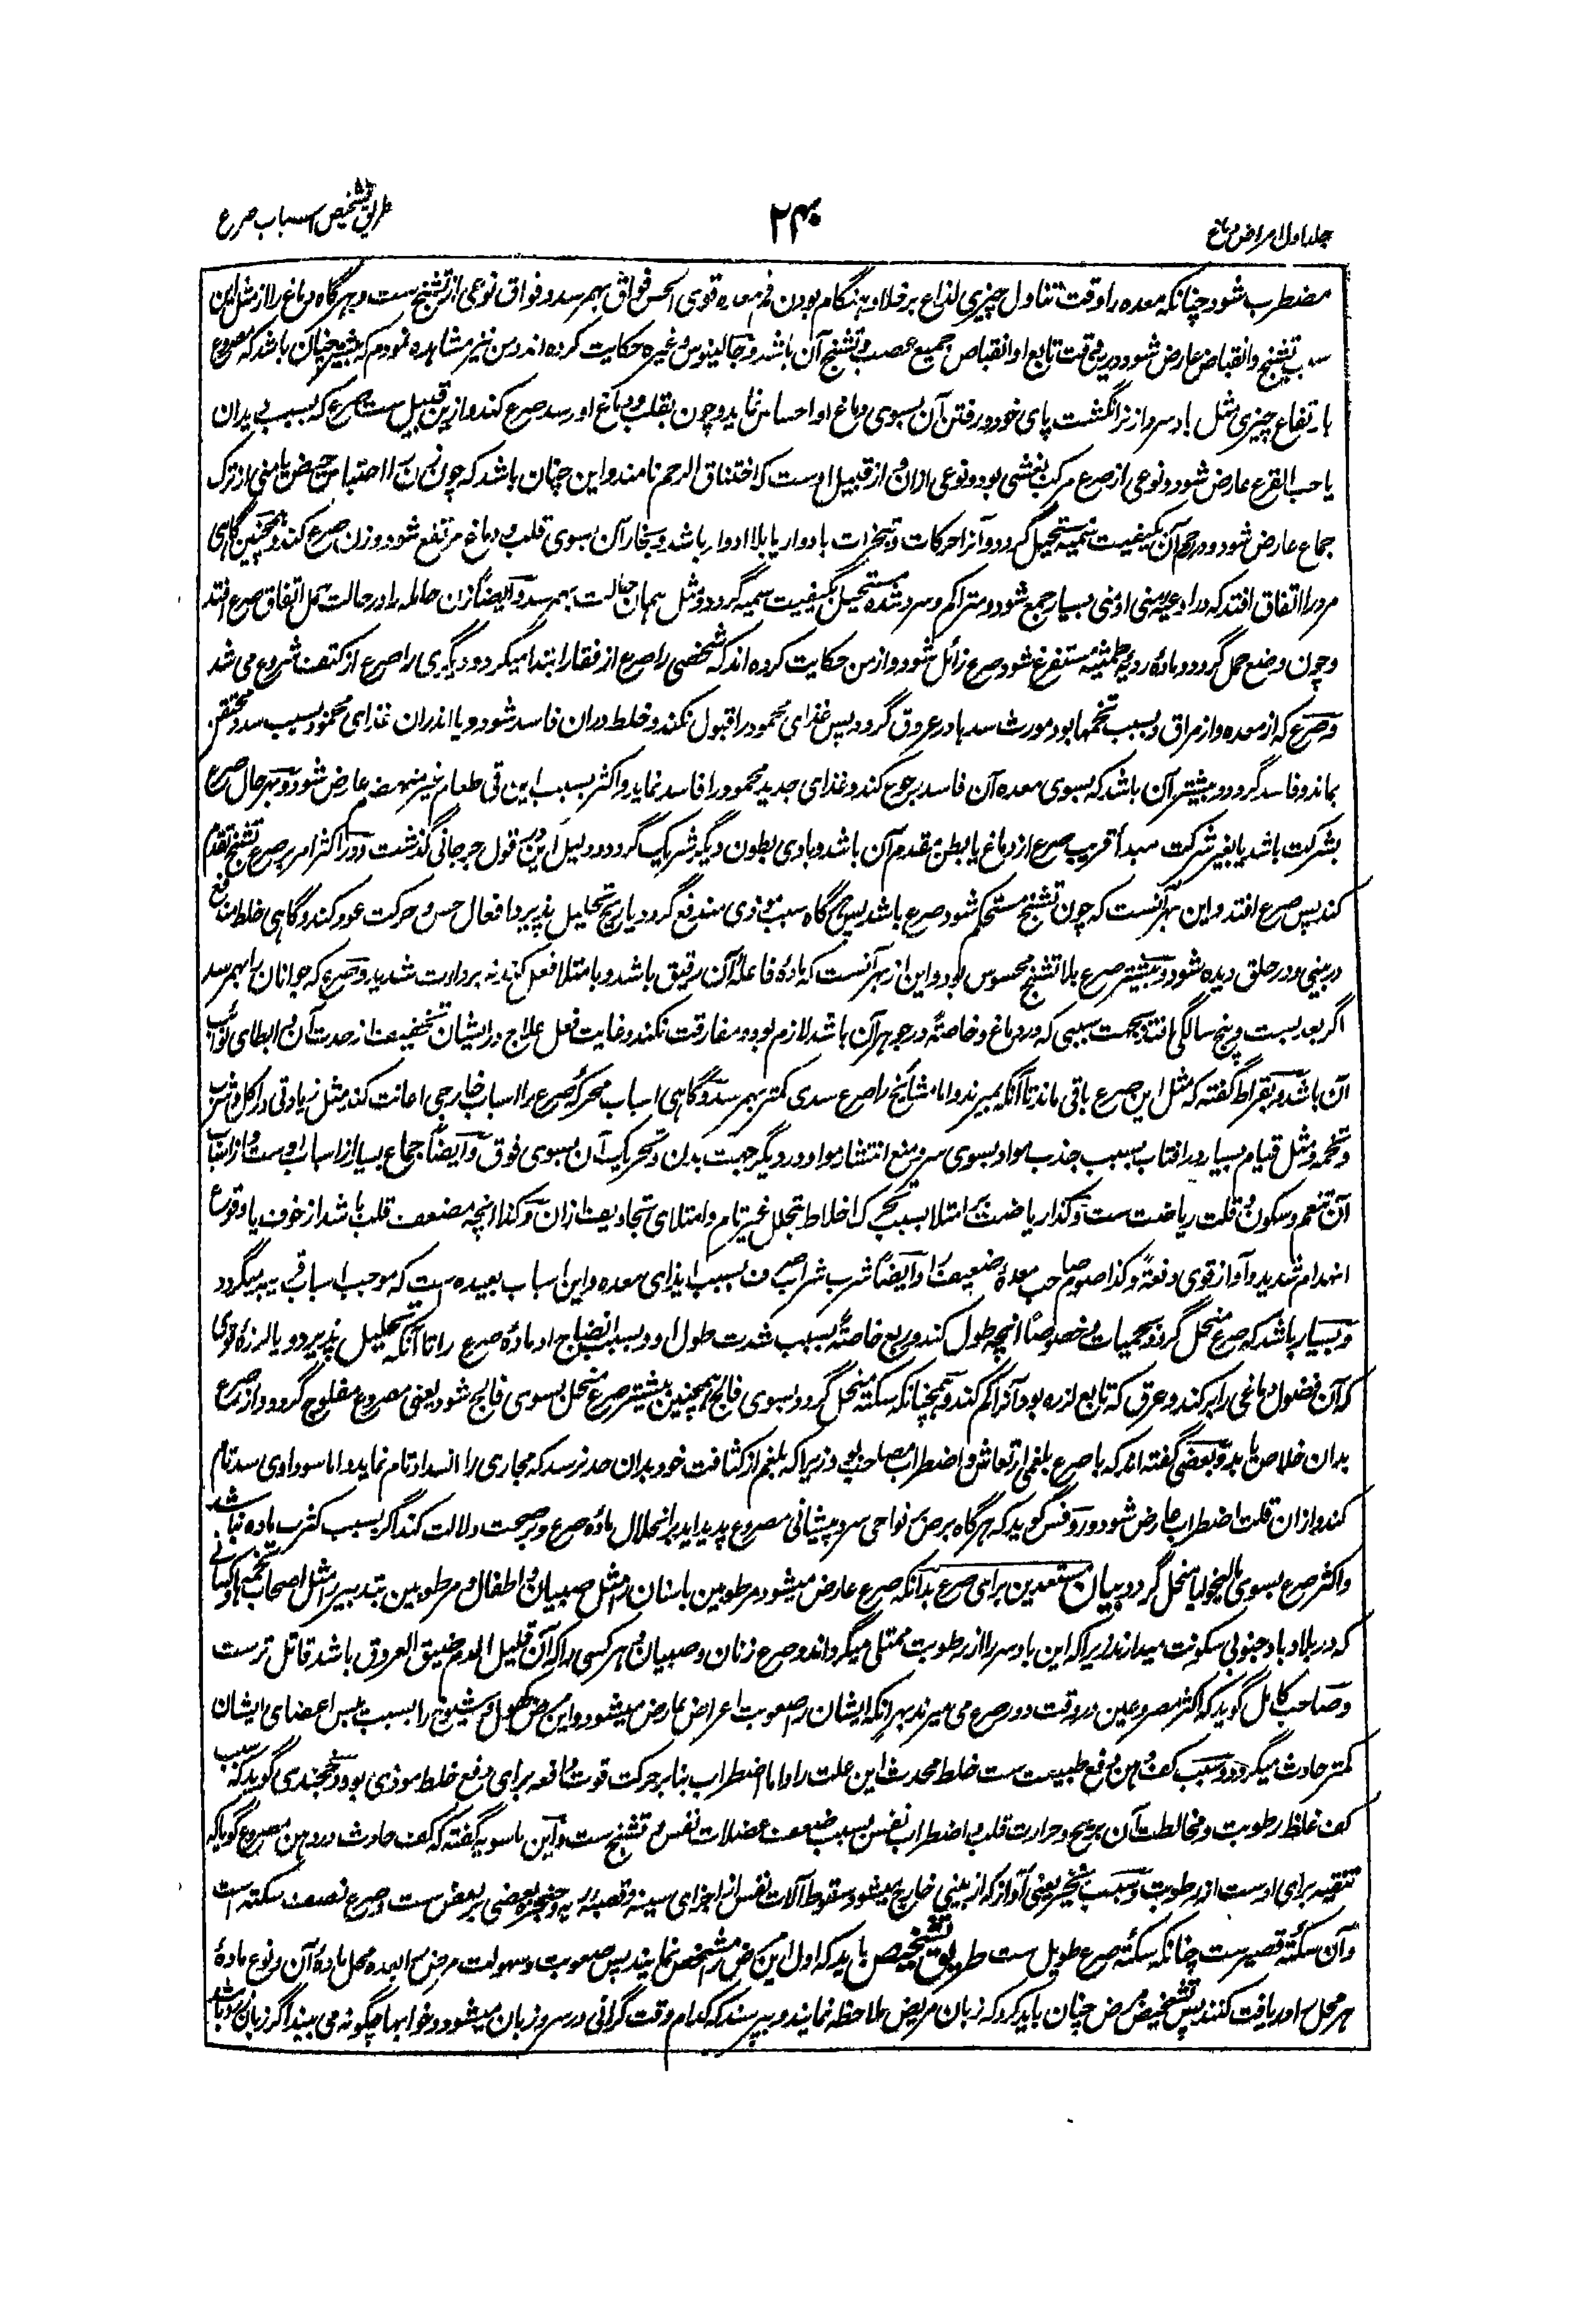 جلد اول امراض دماغ
۲۴۰
طریق تشخیص اسباب صرع
مضطرب شود چنانکه معده را وقت تناول چیزی لذاع بر خلا و به هنگام بودن فم معده قوی الحس فواق بهم رسد و فواق نوعی از تشنج ست و هرگاه دماغ را از مثل این
سبب تشنج و انقباض عارض شود درین وقت تابع او انقباض جمیع عصب و تشنج آن باشد و جالینوس و غیره حکایت کرده‌اند و من نیز مشاهده نمودم که بیشتر چنان باشد که مصروع
بارتفاع چیزی مثل باد سرد از نر انگشت پای خود و رفتن آن بسوی دماغ او احساس نماید و چون بقلب و دماغ او رسد صرع کند و ازین قبیل ست صرع که بسبب دیدان
یا حب القرع عارض شود و نوعی از صرع مرکب بغشی بود و نوعی ازان از قبیل اوست که اختناق الرحم نامند و این چنان باشد که چون زن را احتباس حیض یا منی از ترک
جماع عارض شود و در رحم آن بکیفیت سمیه مستحیل گردد و آنرا حرکات و تبخرات بادوار یا بلا ادوار باشد و بخار آن بسوی قلب و دماغ مرتفع شود و زن صرع کند و همچنین گاهی
مرد را اتفاق افتد که در اوعیه منی او منی بسیار جمع شود و متراکم و سرد شده مستحیل بکیفیت سمیه گردد و مثل همان حالت بهم رسد و ایضاً زن حامله را در حالت حمل اتفاق صرع افتد
و چون وضع حمل گردد و ماده ردیه طمثیه مستفرغ شود صرع زائل شود و از من حکایت کرده‌اند که شخصی را صرع از فقار ابتدا میگرد و دیگری را صرع از کتف شروع می شد
و صرع که از معده و از مراق و بسبب تخمها بود مورث سدها در عروق گردد پس غذای محمود را قبول نکند و خلط دران فاسد شود و یا اندران غذای محمود بسبب سده محتقن
بماند و فاسد گردد و بیشتر آن باشد که بسوی معده آن فاسد رجوع کند و غذای جدید محمود را فاسد نماید و اکثر بسبب این قی طعام غیر منهضم عارض شود و بهر حال صرع
بشرکت باشد یا بغیر شرکت مبدأ قریب صرع از دماغ یا بطن مقدم آن باشد و با وی بطون دیگر شریک گردد و دلیل این در قول جرجانی گذشت و در اکثر امر بر صرع تشنج تقدم
کند پس صرع افتد و این بهر آنست که چون تشنج مستحکم شود صرع باشد پس هرگاه سبب موذی مندفع گردد یا ریح تحلیل پذیرد افعال حس و حرکت عود کند و گاهی خلط مندفع
در بینی و در حلق دیده شود و بیشتر صرع بلا تشنج محسوس بود و این از بهر آنست که ماده فاعله آن رقیق باشد و بامتلا فعل کند نه بردائت شدید و صرع که جوانان را بهم رسد
اگر بعد بست و پنج سالگی افتد بجهت سببی که در دماغ و خاصةً در جوهر آن باشد لازم بود و مفارقت نکند و غایت فعل علاج در ایشان تخفیف از حدت آن و ابطای نوائب
آن باشد و بقراط گفته که مثل این صرع باقی ماند تا آنکه بمیرند و اما مشائخ را صرع سدی کمتر بهم رسد و گاهی اسباب محرکه صرع را اسباب خارجی اعانت کند مثل زیادتی در اکل و شرب
و تخمه و مثل قیام بسیار در آفتاب بسبب جذب مواد بسوی سر و منع انتشار مواد در دیگر جهت بدن و تحریک آن بسوی فوق و ایضاً جماع بسیار از اسباب اوست و از اسباب
آن تنعم و سکون و قلت ریاضت ست و کذا ریاضت بر امتلا بسبب تحریک اخلاط بتحلل غیر تام و امتلای تجاویف ازان و کذا آنچه مضعف قلب باشد از خوف یا وقوع
انهدام شدید و آواز قوی دفعةً و کذا صوم صاحب معده ضعیف را و ایضاً شرب شراب صرف بسبب ایذای معده و این اسباب بعیده ست که موجب اسباب قریبه میگردد
و بسیار باشد که صرع منحل گردد بحمیات خصوصاً آنچه طول کند و ربع خاصةً بسبب شدت طول او و بسبب انضاج او ماده صرع را تا آنکه تحلیل پذیرد و یا لرزه قوی
که آن فضول دماغی را بر کند و عرق که تابع لرزه بود آنرا کم کند و چنانکه سکته منحل گردد بسوی فالج همچنین بیشتر صرع منحل بسوی فالج شود یعنی مصروع مفلوج گردد و از صرع
بدان خلاص یابد و بعضی گفته‌اند که با صرع بلغمی ارتعاش و اضطراب مصاحب بود زیرا که بلغم از کثافت خود بدان حد نرسد که مجاری را انسداد تام نماید و اما سوداوی سد تام
کند و ازان قلت اضطراب عارض شود و روفس گوید که هرگاه برص در نواحی سر و پیشانی مصروع پدید آید بر انحلال ماده صرع و بر صحت دلالت کند اگر بسبب کثرت ماده نباشد
و اکثر صرع بسوی مالیخولیا منحل گردد بیان مستعدین برای صرع بدانکه صرع عارض میشود مرطوبین باسنان را مثل صبیان و اطفال و مرطوبین بتدبیر را مثل اصحاب تخمه و کسانی
که در بلاد باد جنوبی سکونت میدارند زیرا که این باد سر را از رطوبت ممتلی میگرداند و صرع زنان و صبیان و هر کسی را که آن قلیل الدم ضیق العروق باشد قاتل ترست
و صاحب کامل گوید که اکثر مصروعین در وقت دور صرع می میرند بهر آنکه ایشان را صعوبت اعراض عارض میشود و این مرض کهول و شیوخ را بسبب یبس اعضای ایشان
کمتر حادث میگردد و سبب کف دهن دفع طبیعت ست خلط محدث این علت را و اما اضطراب بنابر حرکت قوت دافعه برای دفع خلط موذی بود و خجندی گوید که سبب
کف غلظ رطوبت و مخالطت آن بریح و حرارت قلب و اضطراب نفس بسبب ضعف عضلات نفس و تشنج ست و ابن ماسویه گفته که کف حادث در دهن مصروع گویا که
تنقیه برای اوست از رطوبت و سبب شخیر یعنی آواز که از بینی خارج میشود سقوط آلات نفس از اجزای سینه و قصبه ریه و حنجره بعضی بر بعض ست و صرع نصف سکته است
و آن سکته قصیرست چنانکه سکته صرع طویل ست طریق تشخیص باید که اول این مرض را مشخص نمایند پس صعوبت و سهولت مرض را بعده محل ماده آن و نوع ماده
هر محل را دریافت کنند پس تشخیص مرض چنان باید کرد که زبان مریض ملاحظه نمایند و بپرسند که کدام وقت گرانی در سر و زبان میشود و خوابها چگونه می بیند اگر زبان